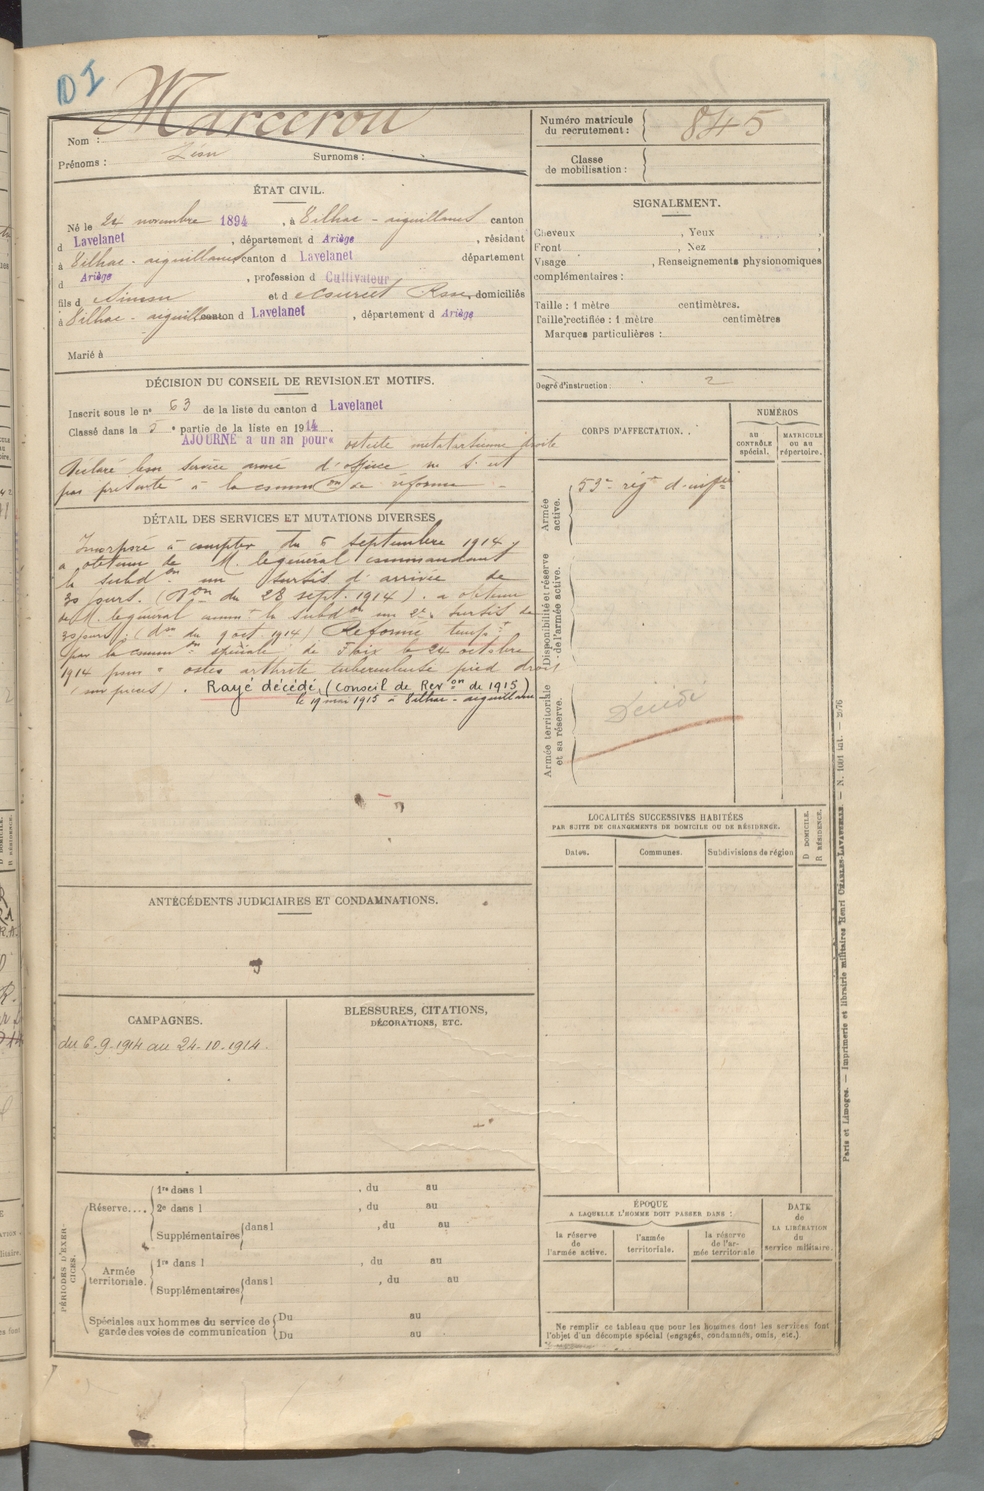 DI
Marcerou
Nom :
Prénoms : Léon Surnoms :
Numéro matricule du recrutement : 845
Classe de mobilisation :
ÉTAT CIVIL.
Né le 24 novembre 1894, à Eilhac - aiguillanes canton
d Lavelanet, département d Ariège, résidant
à Eilhac - aiguillanes canton d Lavelanet département
d Ariège, profession d Cultivateur
fils d Simon et d Rose, domiciliés
à Eilhac - aiguillanes canton d Lavelanet, département d Ariège
Marié à
SIGNALEMENT.
Cheveux , Yeux ,
Front , Nez ,
Visage , Renseignements physionomiques
complémentaires :
Taille : 1 mètre centimètres.
Taille rectifiée : 1 mètre centimètres
Marques particulières :
Degré d'instruction : 2
DÉCISION DU CONSEIL DE REVISION ET MOTIFS.
Inscrit sous le n° 63 de la liste du canton d Lavelanet
Classé dans la 5e partie de la liste en 1914.
AJOURNÉ à un an pour « ostéite métatarsienne droite
Déclaré bon service armé d'office ne s'est
pas présenté à la common de réforme -
DÉTAIL DES SERVICES ET MUTATIONS DIVERSES
Incorporé à compter du 6 septembre 1914 y
a obtenu de M. le général commandant
la subdon un sursis d'arrivée de
30 jours. (Don du 28 sept. 1914). a obtenu
de M. le général comt la subdon un 2e sursis de
30 jours, (don du 9 oct. 1914) Réformé tempre
par la common spéciale de Foix le 24 octobre
1914 pour " ostéo arthrite tuberculeuse pied droit
. Rayé décédé, (Conseil de Revon de 1915)
le 19 mai 1915 à Eilhac - aiguillanes
CORPS D'AFFECTATION.
NUMÉROS
AU CONTRÔLE spécial.
MATRICULE OU AU répertoire.
Armée active.
59e régt d'infie
Disponibilité et réserve de l'armée active.
Armée territoriale et sa réserve.
Décédé
LOCALITÉS SUCCESSIVES HABITÉES
PAR SUITE DE CHANGEMENTS DE DOMICILE OU DE RÉSIDENCE.
Dates.
Communes.
Subdivisions de région
D DOMICILE.
R RÉSIDENCE.
ANTÉCÉDENTS JUDICIAIRES ET CONDAMNATIONS.
CAMPAGNES.
du 6-9-1914 au 24-10-1914
BLESSURES, CITATIONS,
DÉCORATIONS, ETC.
PÉRIODES D'EXERCICES.
Réserve....
1re dans l , du au
2e dans l , du au
Supplémentaires dans l , du au
Armée territoriale.
1re dans l , du au
Supplémentaires dans l , du au
Spéciales aux hommes du service de garde des voies de communication
Du au
Du au
ÉPOQUE
A LAQUELLE L'HOMME DOIT PASSER DANS :
la réserve de l'armée active.
l'armée territoriale.
la réserve de l'armée territoriale
DATE de LA LIBÉRATION du service militaire.
Ne remplir ce tableau que pour les hommes dont les services font
l'objet d'un décompte spécial (engagés, condamnés, omis, etc.)
Paris et Limoges. — Imprimerie et librairie militaires Henri CHARLES-LAVAUZELLE.